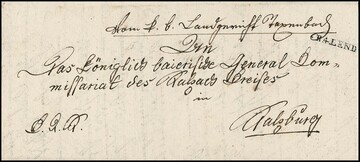 Vom k. b. Landgericht Taxenbach
An
R.4.LEND
Das königlich baierische General Com-
missariat des Salzach Kreises
in
Salzburg